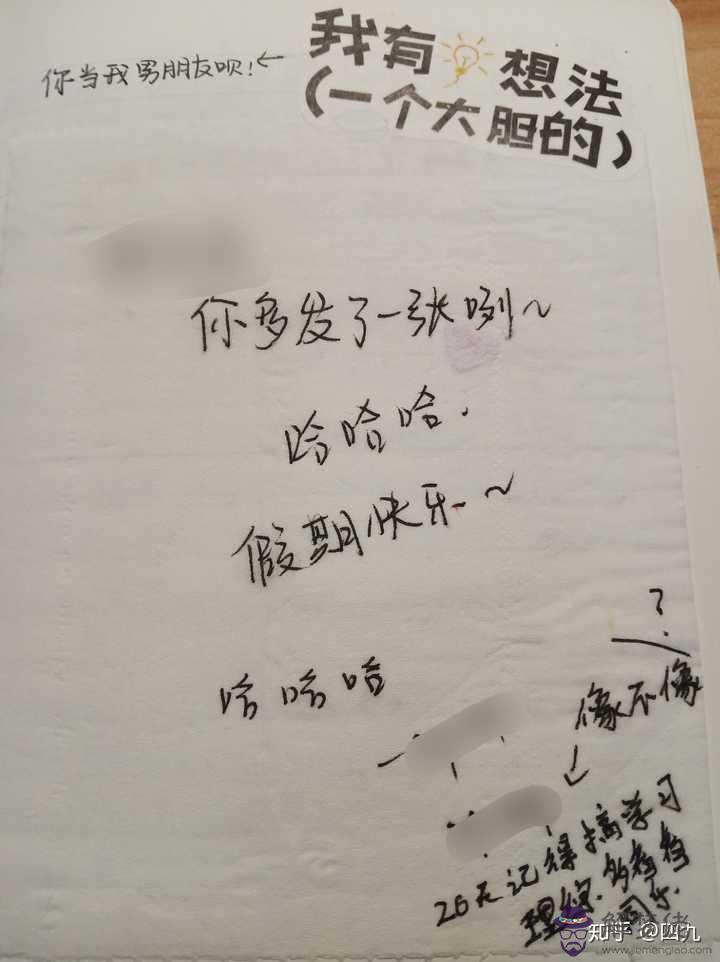 我有想法
(一个大胆的)
你当我男朋友呗!←
你多发了一张咧~
哈哈哈.
假期快乐~
哈哈哈
?
像不像
26天记得搞学习
理综.多看看
知乎 @四九
www.jiemenglao.com